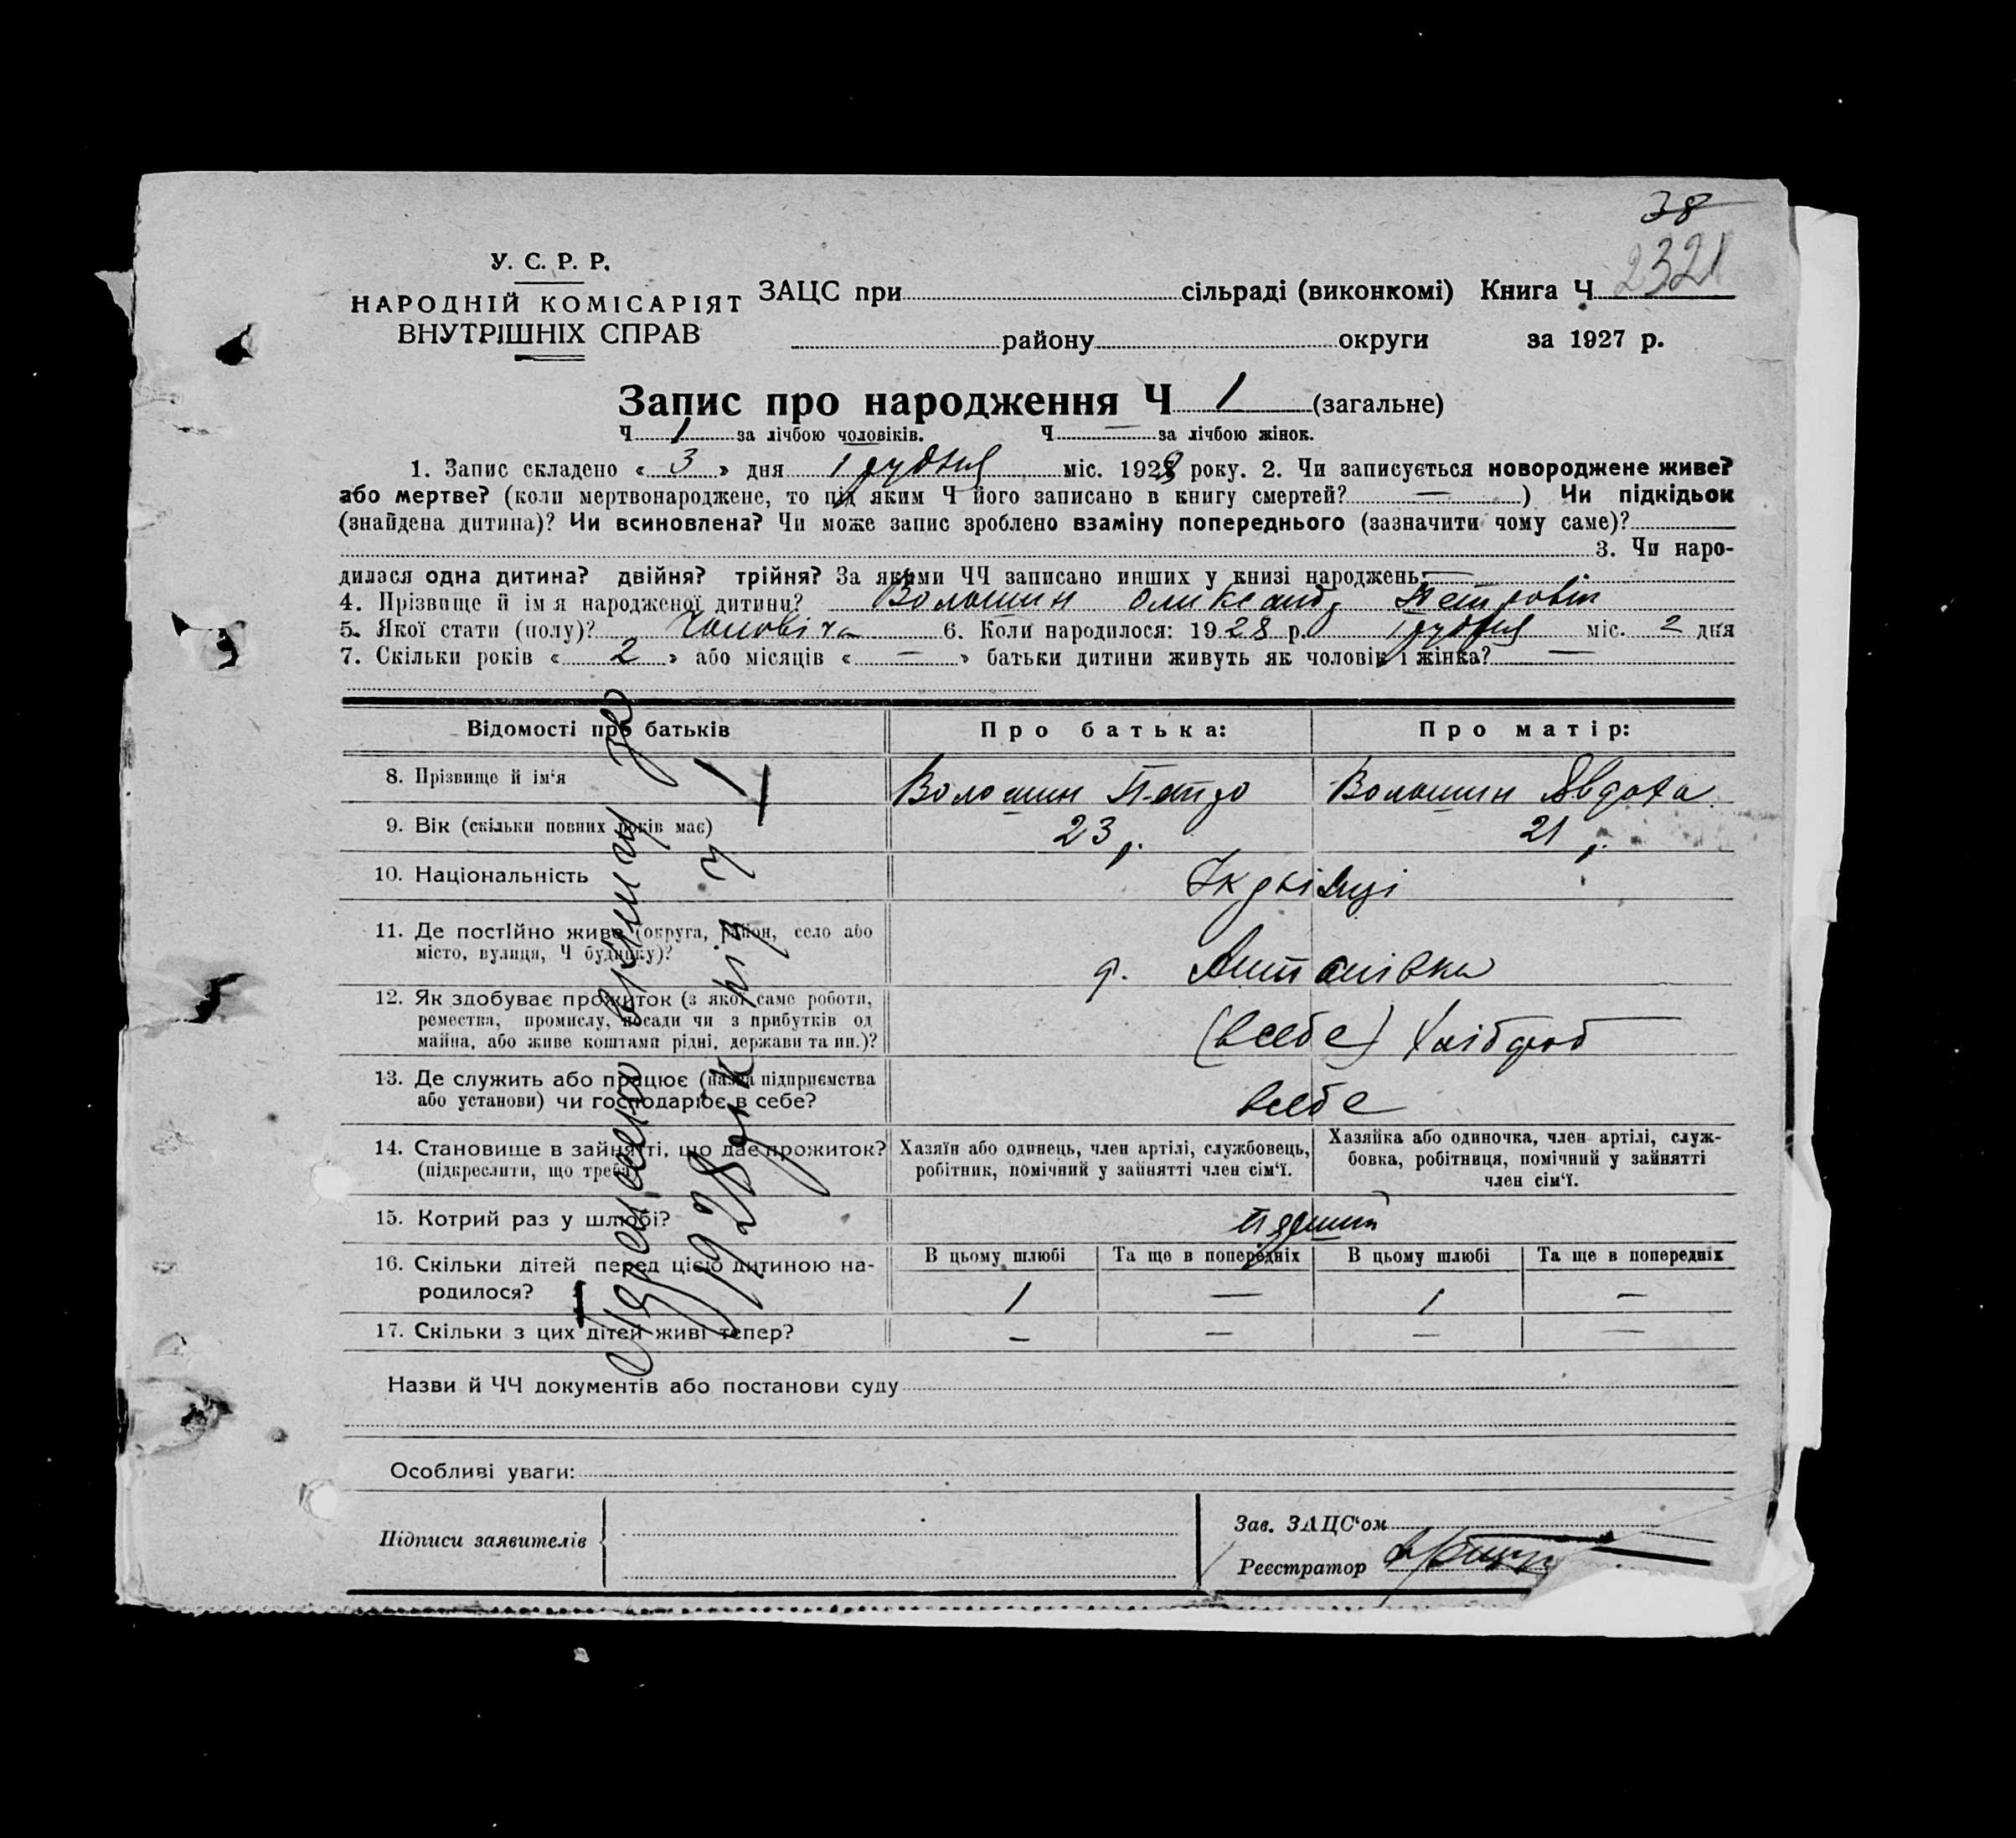 38
2321
У. С. Р. Р.
НАРОДНІЙ КОМІСАРІЯТ
ВНУТРІШНІХ СПРАВ
ЗАЦС при сільраді (виконкомі) Книга Ч
району округи за 1927 р.
Запис про народження Ч 1 (загальне)
Ч 1 за лічбою чоловіків. Ч — за лічбою жінок.
1. Запис складено « 3 » дня грудня міс. 1928 року. 2. Чи записується новороджене живе?
або мертве? (коли мертвонароджене, то під яким Ч його записано в книгу смертей? — ) Чи підкідьок
(знайдена дитина)? Чи всиновлена? Чи може запис зроблено взаміну попереднього (зазначити чому саме)?
3. Чи наро-
дилася одна дитина? двійня? трійня? За якими ЧЧ записано инших у книзі народжень: —
4. Прізвище й ім я народженої дитини? Волошин Олександ Петрович
5. Якої стати (полу)? Чоловіча 6. Коли народилося: 1928 р. грудня міс. 2 дня
7. Скільки років « 2 » або місяців « — » батьки дитини живуть як чоловік і жінка? —
Відомості про батьків Про батька: Про матір:
8. Прізвище й ім‘я Волошин Петро Волошин Явдоха
9. Вік (скільки повних років має) 23 р. 21 р.
10. Національність Українці
11. Де постійно живе (округа, район, село або
місто, вулиця, Ч будинку)? Антонівка
12. Як здобуває прожиток (з якої саме роботи,
ремества, промислу, посади чи з прибутків од
майна, або живе коштами рідні, держави та ин.)? (в себе) Хлібороб
13. Де служить або працює (назва підприємства
або установи) чи господарює в себе? в себе
14. Становище в зайнятті, що дає прожиток?
(підкреслити, що треба)
Хазяїн або одинець, член артілі, службовець,
робітник, помічний у зайнятті член сім‘ї.
Хазяйка або одиночка, член артілі, служ-
бовка, робітниця, помічний у зайнятті
член сім‘ї.
15. Котрий раз у шлюбі? Перший
16. Скільки дітей перед цією дитиною на-
родилося?
В цьому шлюбі Та ще в попередніх В цьому шлюбі Та ще в попередніх
1 — 1 —
17. Скільки з цих дітей живі тепер? — — — —
Назви й ЧЧ документів або постанови суду
Особливі уваги:
Підписи заявителів
Зав. ЗАЦС‘ом
Реєстратор
1928 рік